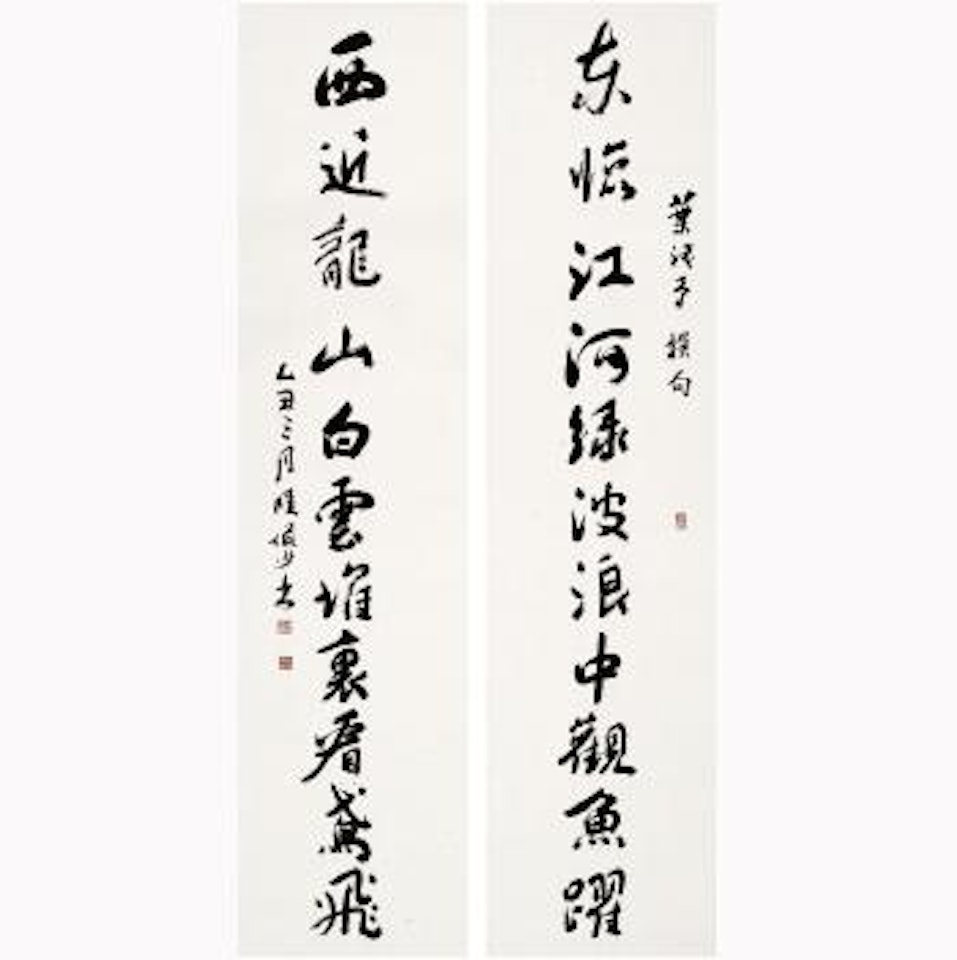 葉浅予撰句
东临江河绿波浪中觀魚躍
西近龍山白雲堆裏看鳶飛
乙丑三月陸儼少書